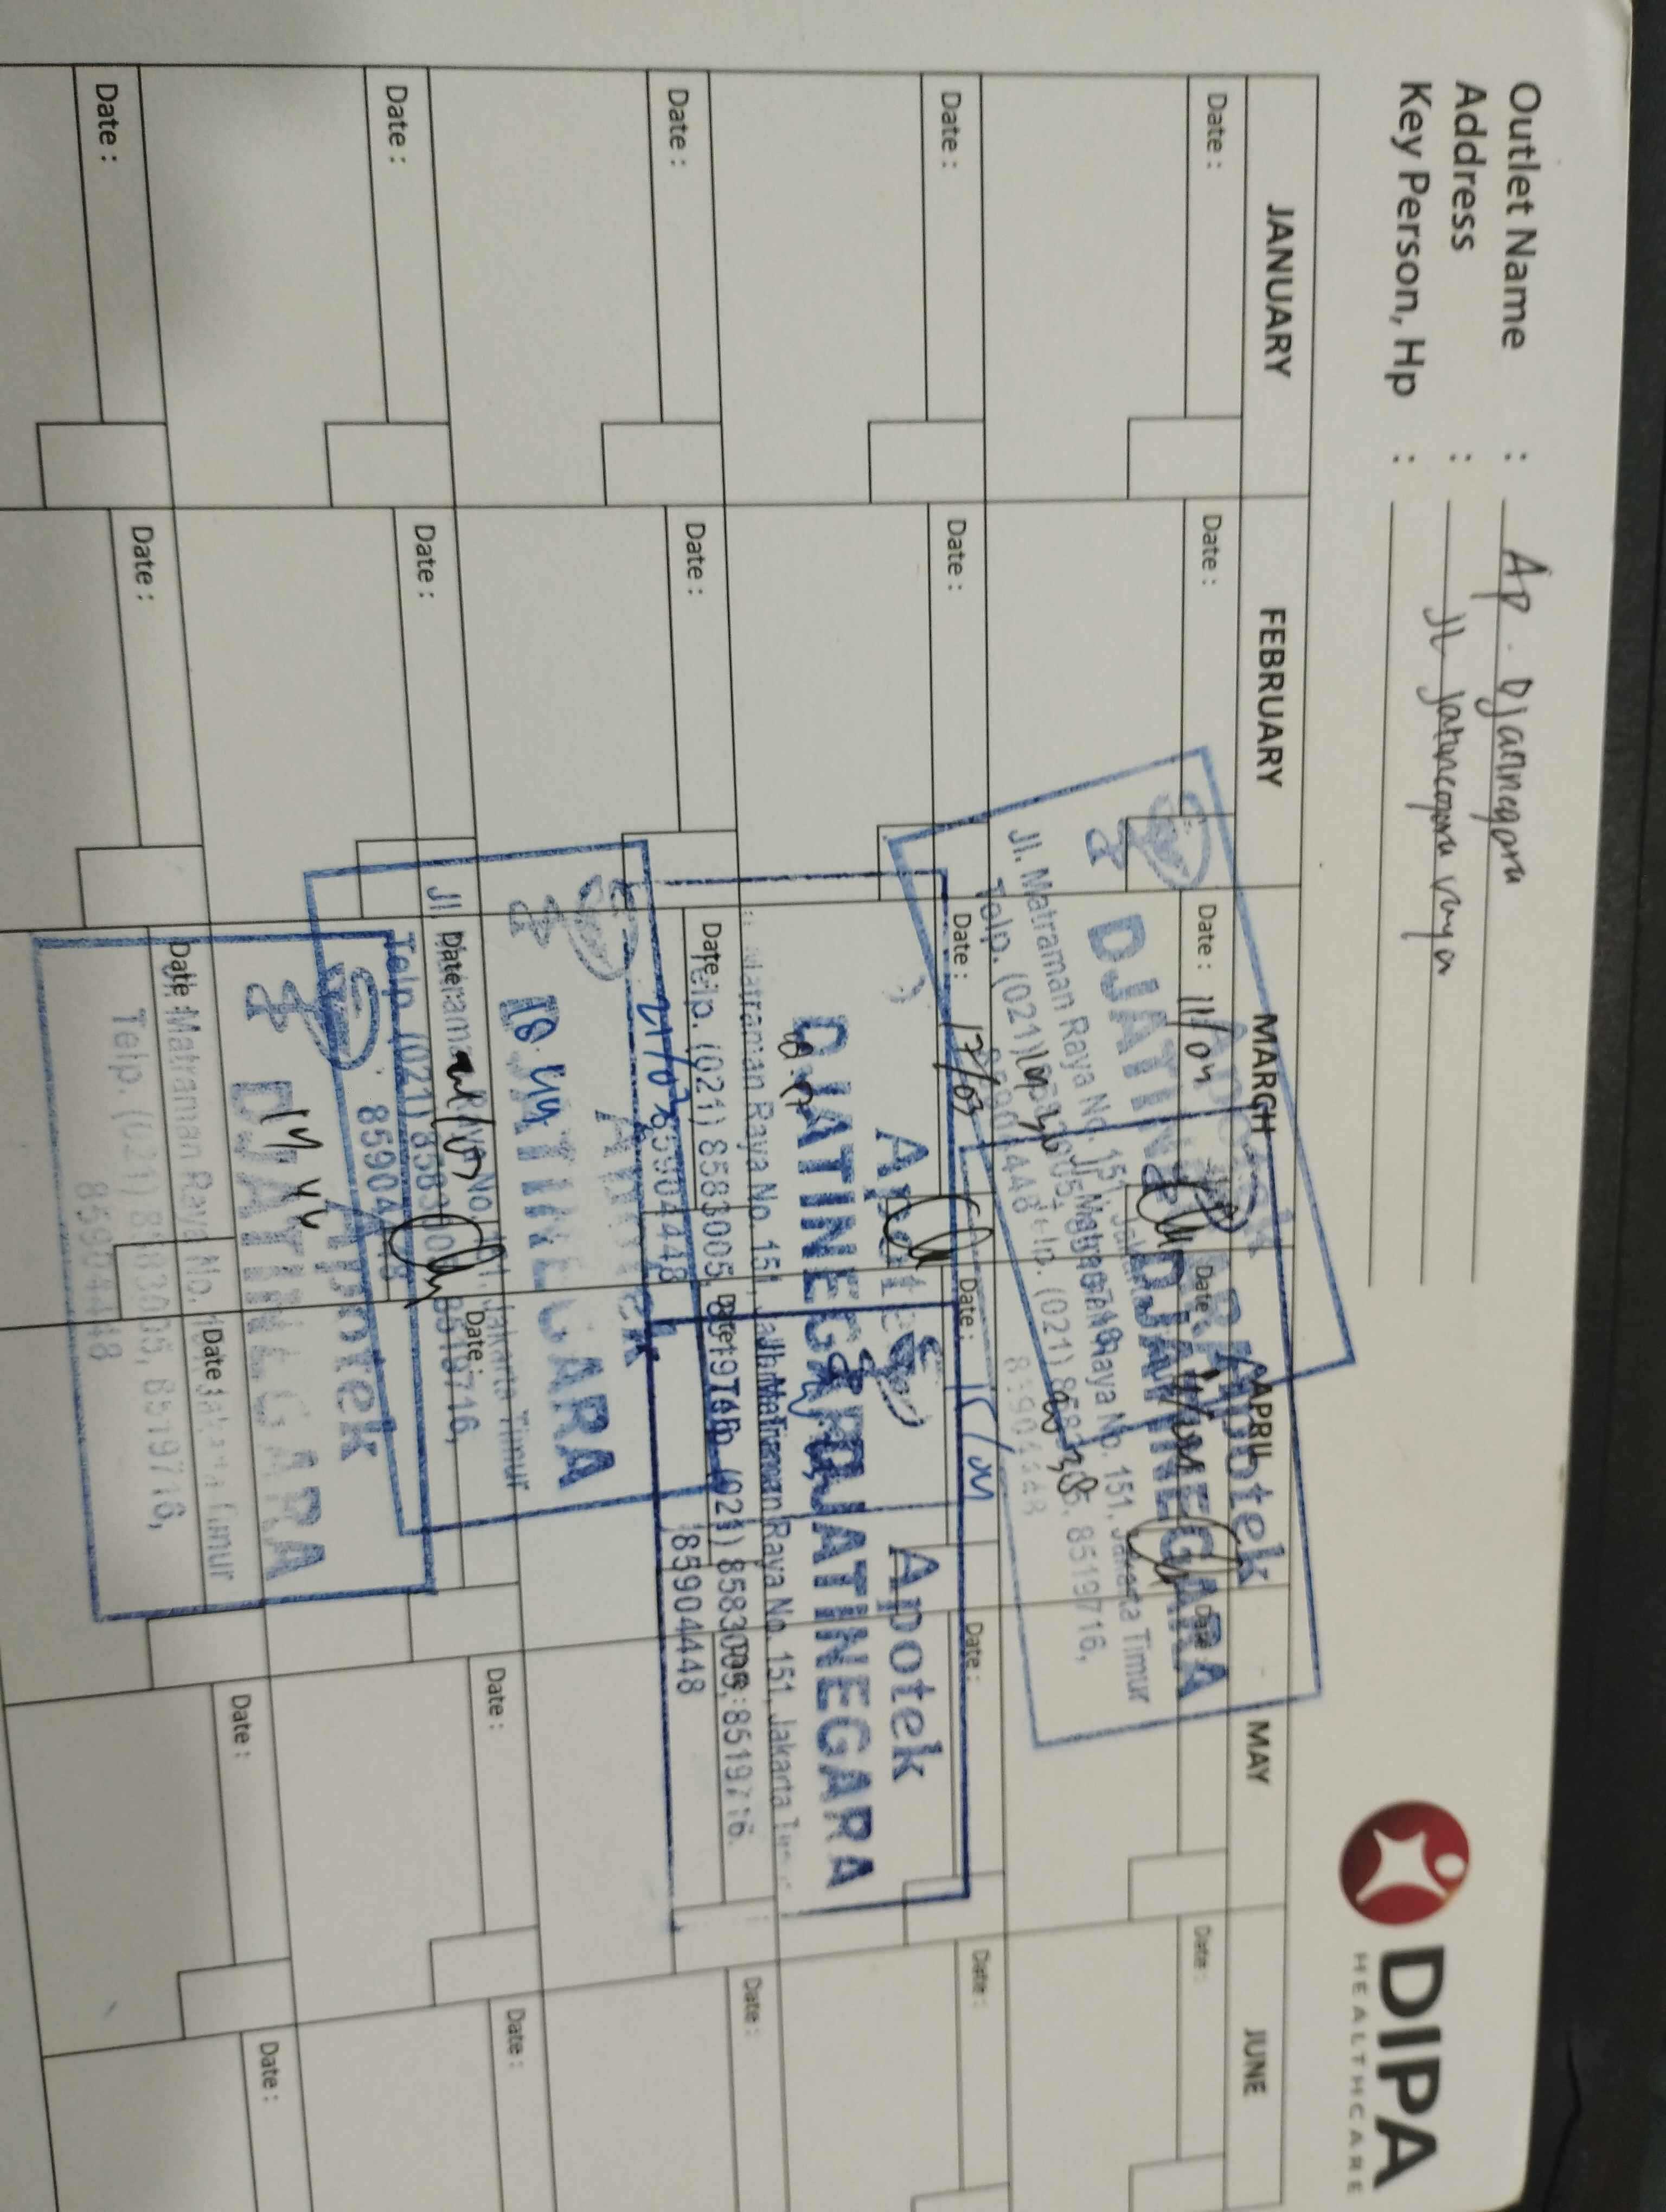 Outlet Name : Ap. Djatinegara
Address : Jl Jatinegara raya
Key Person, Hp :
DIPA
HEALTHCARE
JANUARY FEBRUARY MARCH APRIL MAY JUNE
Date : Date : Date : 11/04 Date : Date : Date :
Apotek
DJATINEGARA
Jl. Matraman Raya No. 151, Jakarta Timur
Telp. (021)
Apotek
DJATINEGARA
Jl. Matraman Raya No. 151, Jakarta Timur
Telp. (021) 8583005, 8519716,
85904448
Date : Date : Date : 17/03 Date : Date : Date :
Apotek
DJATINEGARA
Matraman Raya No. 151,
Telp. (021) 8583005, 8519716,
85904448
Apotek
DJATINEGARA
Jl. Matraman Raya No. 151, Jakarta
Telp. (021) 8583005, 8519716.
85904448
Date : Date : Date : 21/03 Date : Date : Date :
Apotek
DJATINEGARA
Jl. Matraman Raya No. 151, Jakarta Timur
Telp. (021) 8583005, 8519716,
85904448
Date : Date : Date : Date : Date : Date :
Apotek
DJATINEGARA
Jl. Matraman Raya No. 151, Jakarta Timur
Telp. (021) 8583005, 8519716,
85904448
Date : Date : Date : Date : Date : Date :